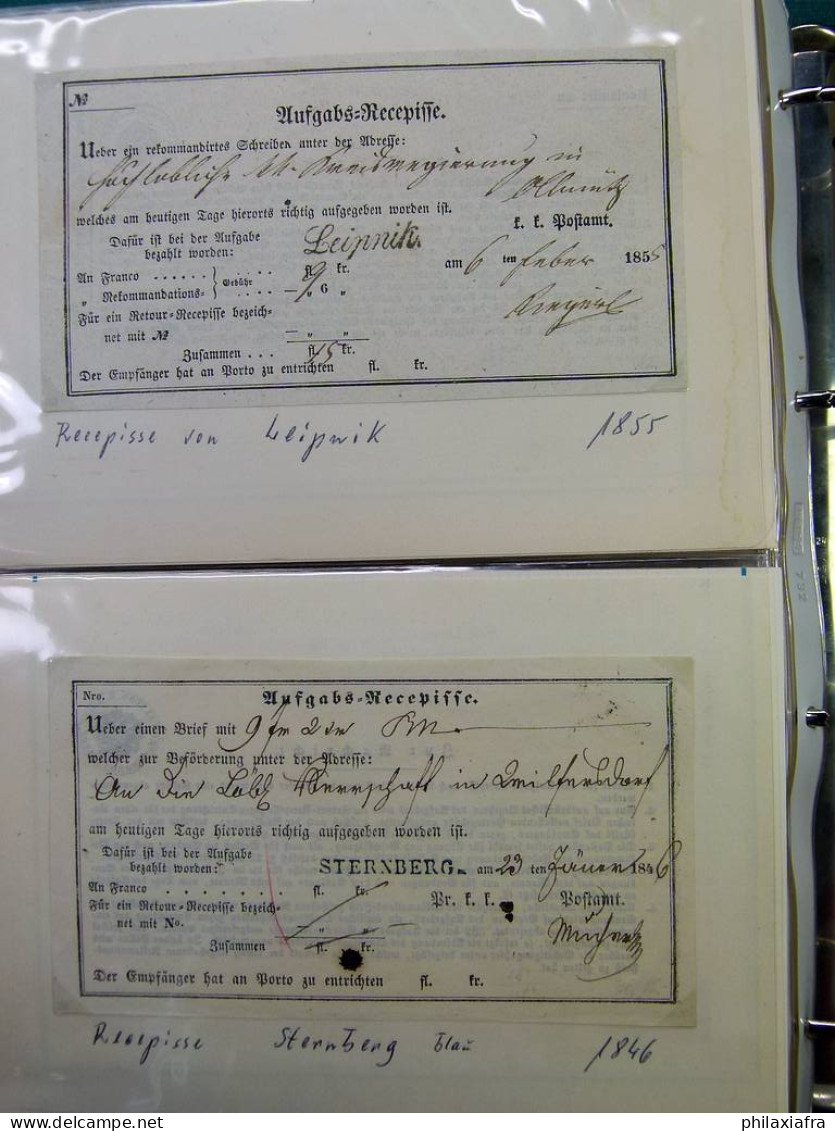 №
Aufgabs=Recepisse.
Ueber ein rekommandirtes Schreiben unter der Adresse:
Hochlöbliche k.k. Kreisregierung in
Ollmütz
welches am heutigen Tage hierorts richtig aufgegeben worden ist.
k. k. Postamt.
Dafür ist bei der Aufgabe
bezahlt worden:
Leipnik.
am 6 ten Feber 1855
An Franco . . . . . . } Gebühr . . . . fl. 9 kr.
„ Rekommandations= . . . . — „ 6 „
Für ein Retour=Recepisse bezeich=
net mit № — „ „
Zusammen . . . fl. 15 kr.
Der Empfänger hat an Porto zu entrichten fl. kr.
Recepisse von Leipnik 1855
Nro.
Aufgabs=Recepisse.
Ueber einen Brief mit 9 fr 2 xr
welcher zur Beförderung unter der Adresse:
An die Löbl Herrschaft in Wilfersdorf
am heutigen Tage hierorts richtig aufgegeben worden ist.
Dafür ist bei der Aufgabe
bezahlt worden:
STERNBERG. am 23 ten Jäner 1846
An Franco . . . . . . . fl. kr.
Pr. k. k. Postamt.
Für ein Retour=Recepisse bezeich=
net mit No. — „ „
Zusammen fl. kr.
Der Empfänger hat an Porto zu entrichten fl. kr.
Recepisse Sternberg blau 1846
792
© www.delcampe.net philaxiafra